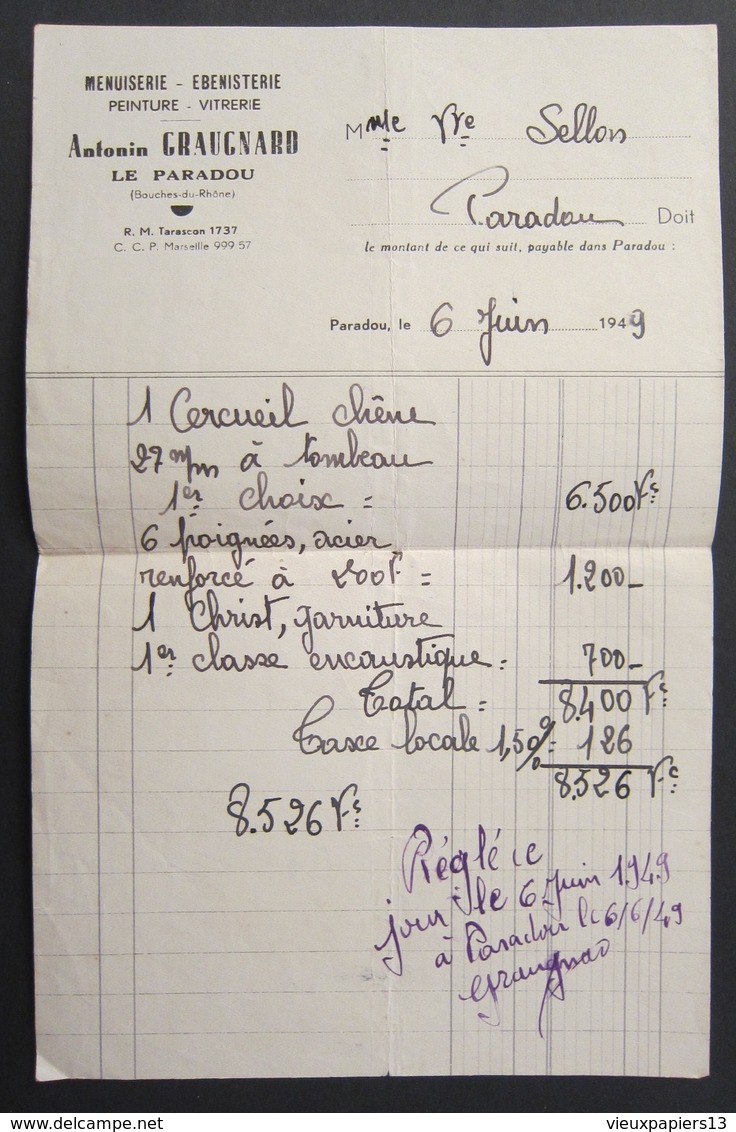 MENUISERIE - EBENISTERIE
PEINTURE - VITRERIE
Antonin GRAUGNARD
LE PARADOU
(Bouches-du-Rhône)
R. M. Tarascon 1737
C. C. P. Marseille 999 57
Mme Vve Sellon
Paradou Doit
le montant de ce qui suit, payable dans Paradou :
Paradou, le 6 Juin 1949
1 Cercueil chêne
27 m/m à tombeau
1er choix = 6.500 Fs
6 poignées, acier
renforcé à 200F = 1.200 -
1 Christ, garniture
1er classe encaustique = 700 -
Total = 8.400 Fs
Taxe locale 1,50% = 126
8.526 Fs
8.526 Fs
Réglé ce
jour le 6 Juin 1949
à Paradou le 6/6/49
Graugnard
vieuxpapiers13